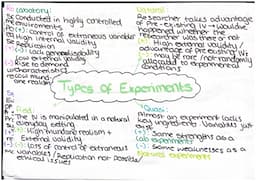 Laboratory:
Conducted in highly controlled
environments
(+): control of extraneous variables
High internal validity
Replication
(-): Lack generalisability
low external validity
Rise to demand
characteristics
Natural:
Researcher takes advantage
of pre-existing IV → would've
happened whether the
researcher was there or not
(+): High external validity /
advantage of pre-existing IV
(-): may be rare / not randomly
allocated to experimental
conditions
Types of Experiments
Field:
The IV is manipulated in a natural
everyday setting
(+): High mundane realism +
External validity
(-): Loss of control of extraneous
variables / Replication not possible
ethical issues
Quasi:
Almost an experiment lacks
key ingredients. Variables just
exist
(+): Some strengths as a
lab experiments
(-): Same weaknesses as a
natural experiments